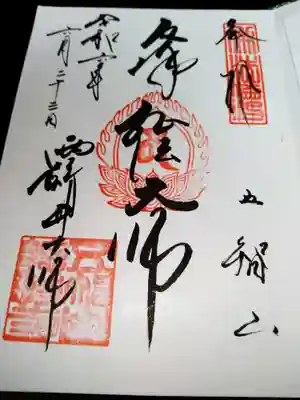 奉拝
五智山
厄除弘法大師
令和元年
六月二十三日
西新井大師